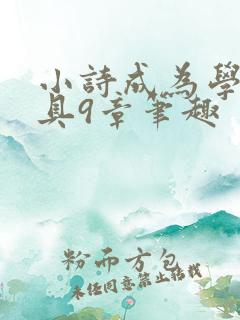 小詩成為學
具9章筆趣
粉而方包
未经同意禁止转载